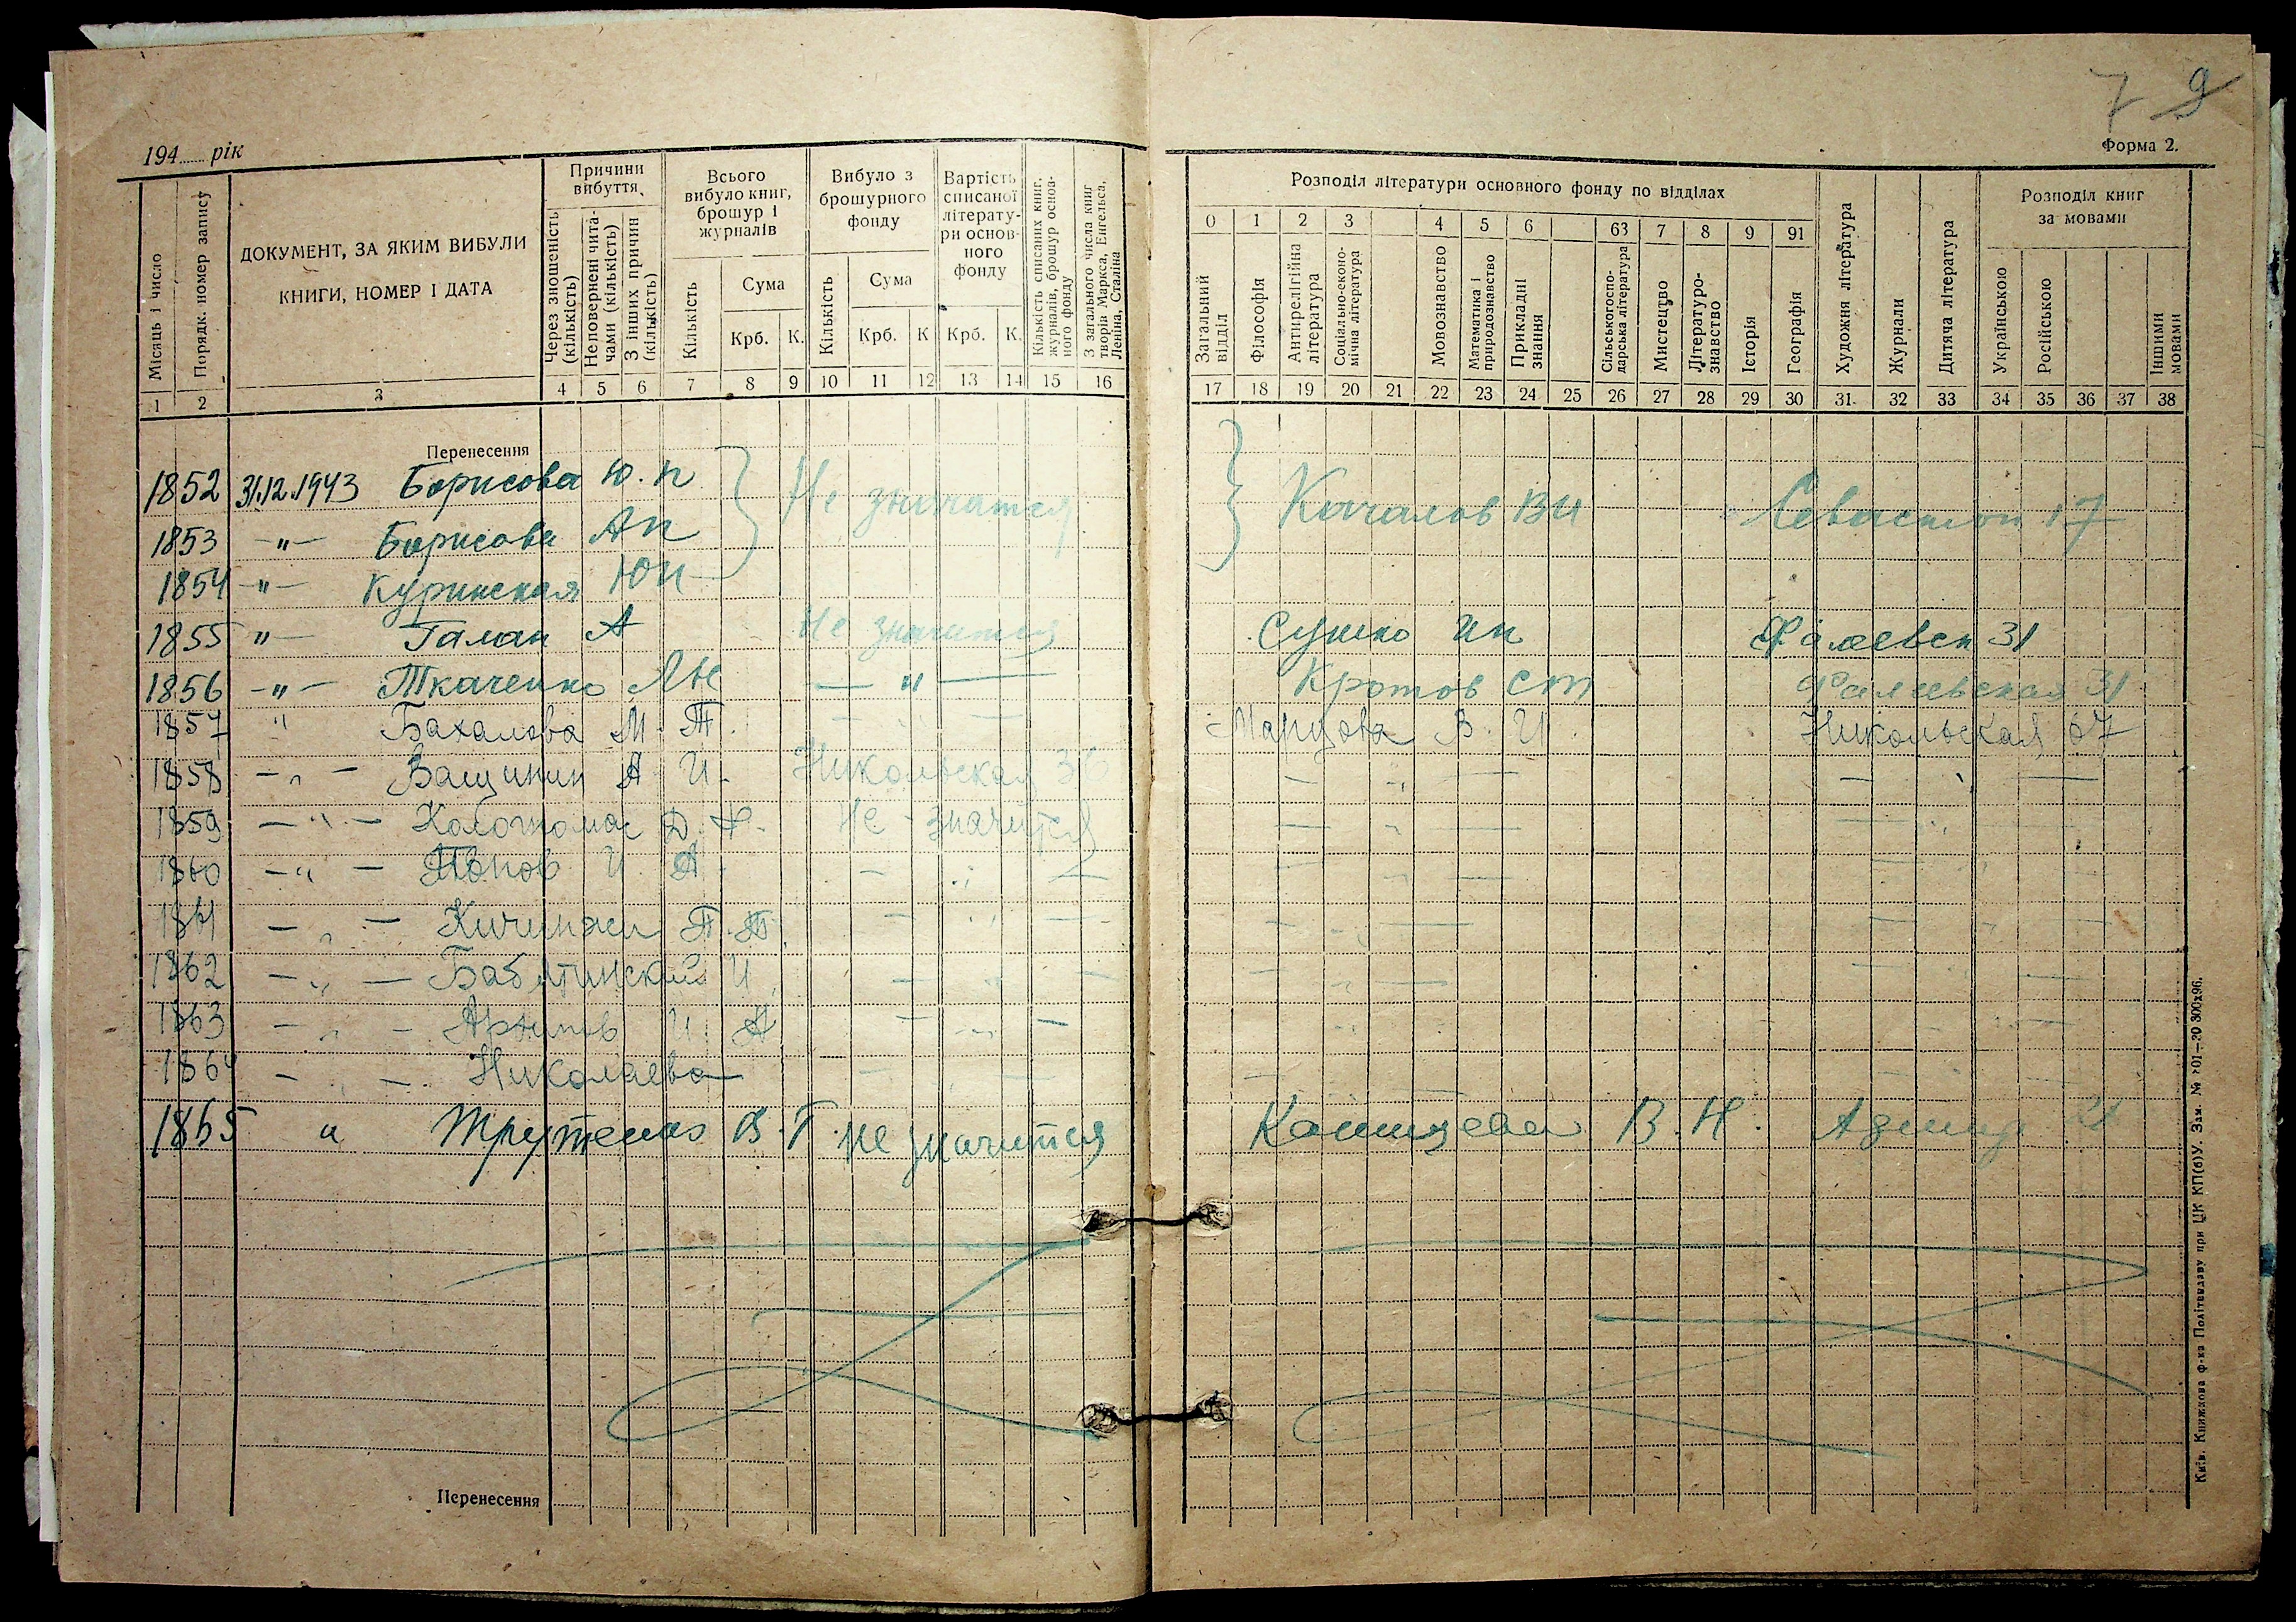 7 9
194 рік
Форма 2.
Місяць і число
Порядк. номер запису
ДОКУМЕНТ, ЗА ЯКИМ ВИБУЛИ
КНИГИ, НОМЕР І ДАТА
Причини вибуття
Через зношеність (кількість)
Неповернені читачами (кількість)
З інших причин (кількість)
Всього вибуло книг, брошур і журналів
Кількість
Сума
Крб. К.
Вибуло з брошурного фонду
Кількість
Сума
Крб. К
Вартість списаної літератури основного фонду
Крб. К.
Кількість списаних книг, журналів, брошур основного фонду
З загального числа книг творів Маркса, Енгельса, Леніна, Сталіна
1 2 3 4 5 6 7 8 9 10 11 12 13 14 15 16
Розподіл літератури основного фонду по відділах
0 1 2 3 4 5 6 63 7 8 9 91
Загальний відділ
Філософія
Антирелігійна література
Соціально-економічна література
Мовознавство
Математика і природознавство
Прикладні знання
Сільськогосподарська література
Мистецтво
Літературознавство
Історія
Географія
Художня література
Журнали
Дитяча література
Розподіл книг за мовами
Українською
Російською
Іншими мовами
17 18 19 20 21 22 23 24 25 26 27 28 29 30 31 32 33 34 35 36 37 38
Перенесення
1852 31.12.1943 Борисова Ю. П
Не значатся Качалов ВИ Севастоп 17
1853 -"- Борисова АП
1854 -"- Куринская ЮИ
1855 " Галан А Не значится Сушко ИП Фалеевск 31
1856 -"- Ткаченко — " — Кротов СТ Фалеевская 31
1857 " Бахалова М. Т. — " — Марцова В. И. Никольская 67
1858 -"- Ващинин А И. Никольская 36 — " — — " —
1859 -"- Д. Не-значится — " — — " —
1860 -"- Попов И А. — " — — " — — " —
1861 -"- — " — — " — — " —
1862 -"- И. — " — — " — — " —
1863 -"- И. А — " — — " — — " —
1864 -"- Николаева — " — — " — — " —
1865 " В. Г. не значится В. Н.
Перенесення
Київ. Книжкова ф-ка Політвидаву при ЦК КП(б)У. Зам. № 201—20 300х96.